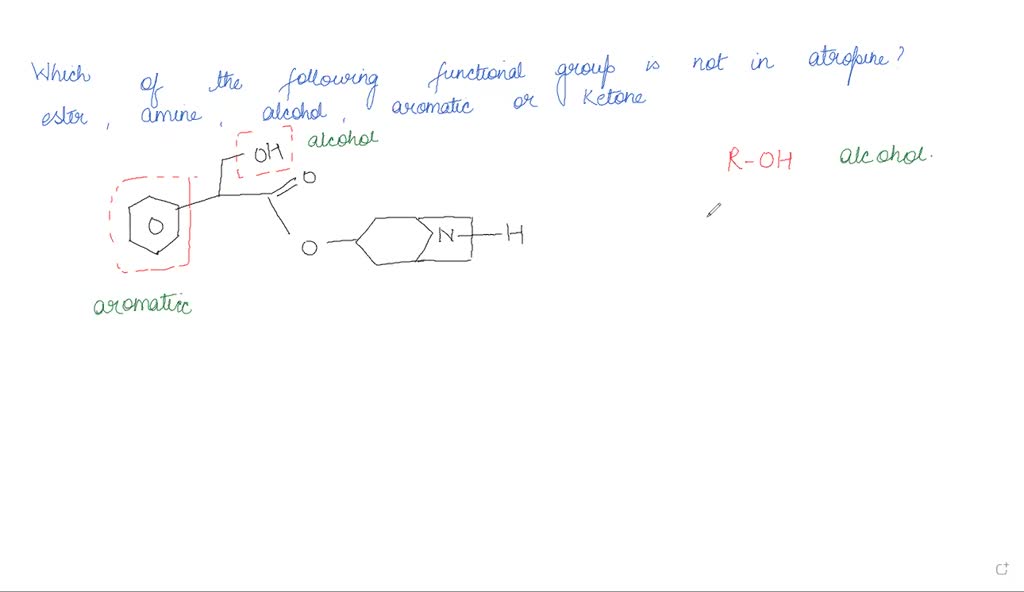 Which of the following functional group is not in atropine?
ester, amine, alcohol, aromatic or Ketone
OH alcohol
R-OH alcohol.
O
O
O
N-H
aromatic